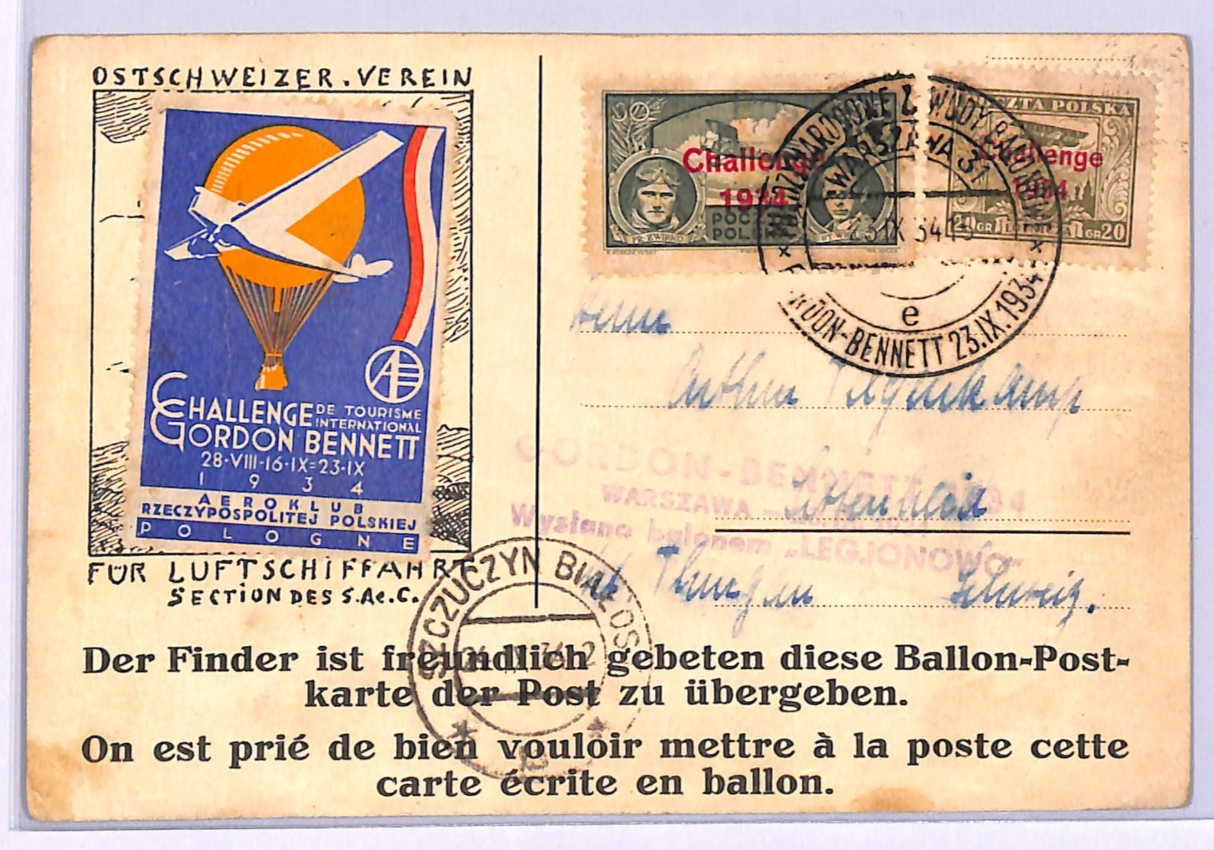 OSTSCHWEIZER. VEREIN
CHALLENGE DE TOURISME
INTERNATIONAL
GORDON BENNETT
28-VIII-16-IX=23-IX
1 9 3 4
AEROKLUB
RZECZYPOSPOLITEJ POLSKIEJ
POLOGNE
FÜR LUFTSCHIFFAHRT
SECTION DES S.Ae.C.
Challenge
1934
FR. ŻWIRKO
POCZTA POLSKA
Challenge
1934
20 GR
GR 20
WARSZAWA 31
IX 34
e
GORDON-BENNETT 23.IX.1934
Herrn
Arthur
GORDON-BENNETT 1934
WARSZAWA
Wysłano balonem „LEGJONOWO"
Thurgau Schweiz.
SZCZUCZYN
Der Finder ist freundlich gebeten diese Ballon-Post-
karte der Post zu übergeben.
On est prié de bien vouloir mettre à la poste cette
carte écrite en ballon.